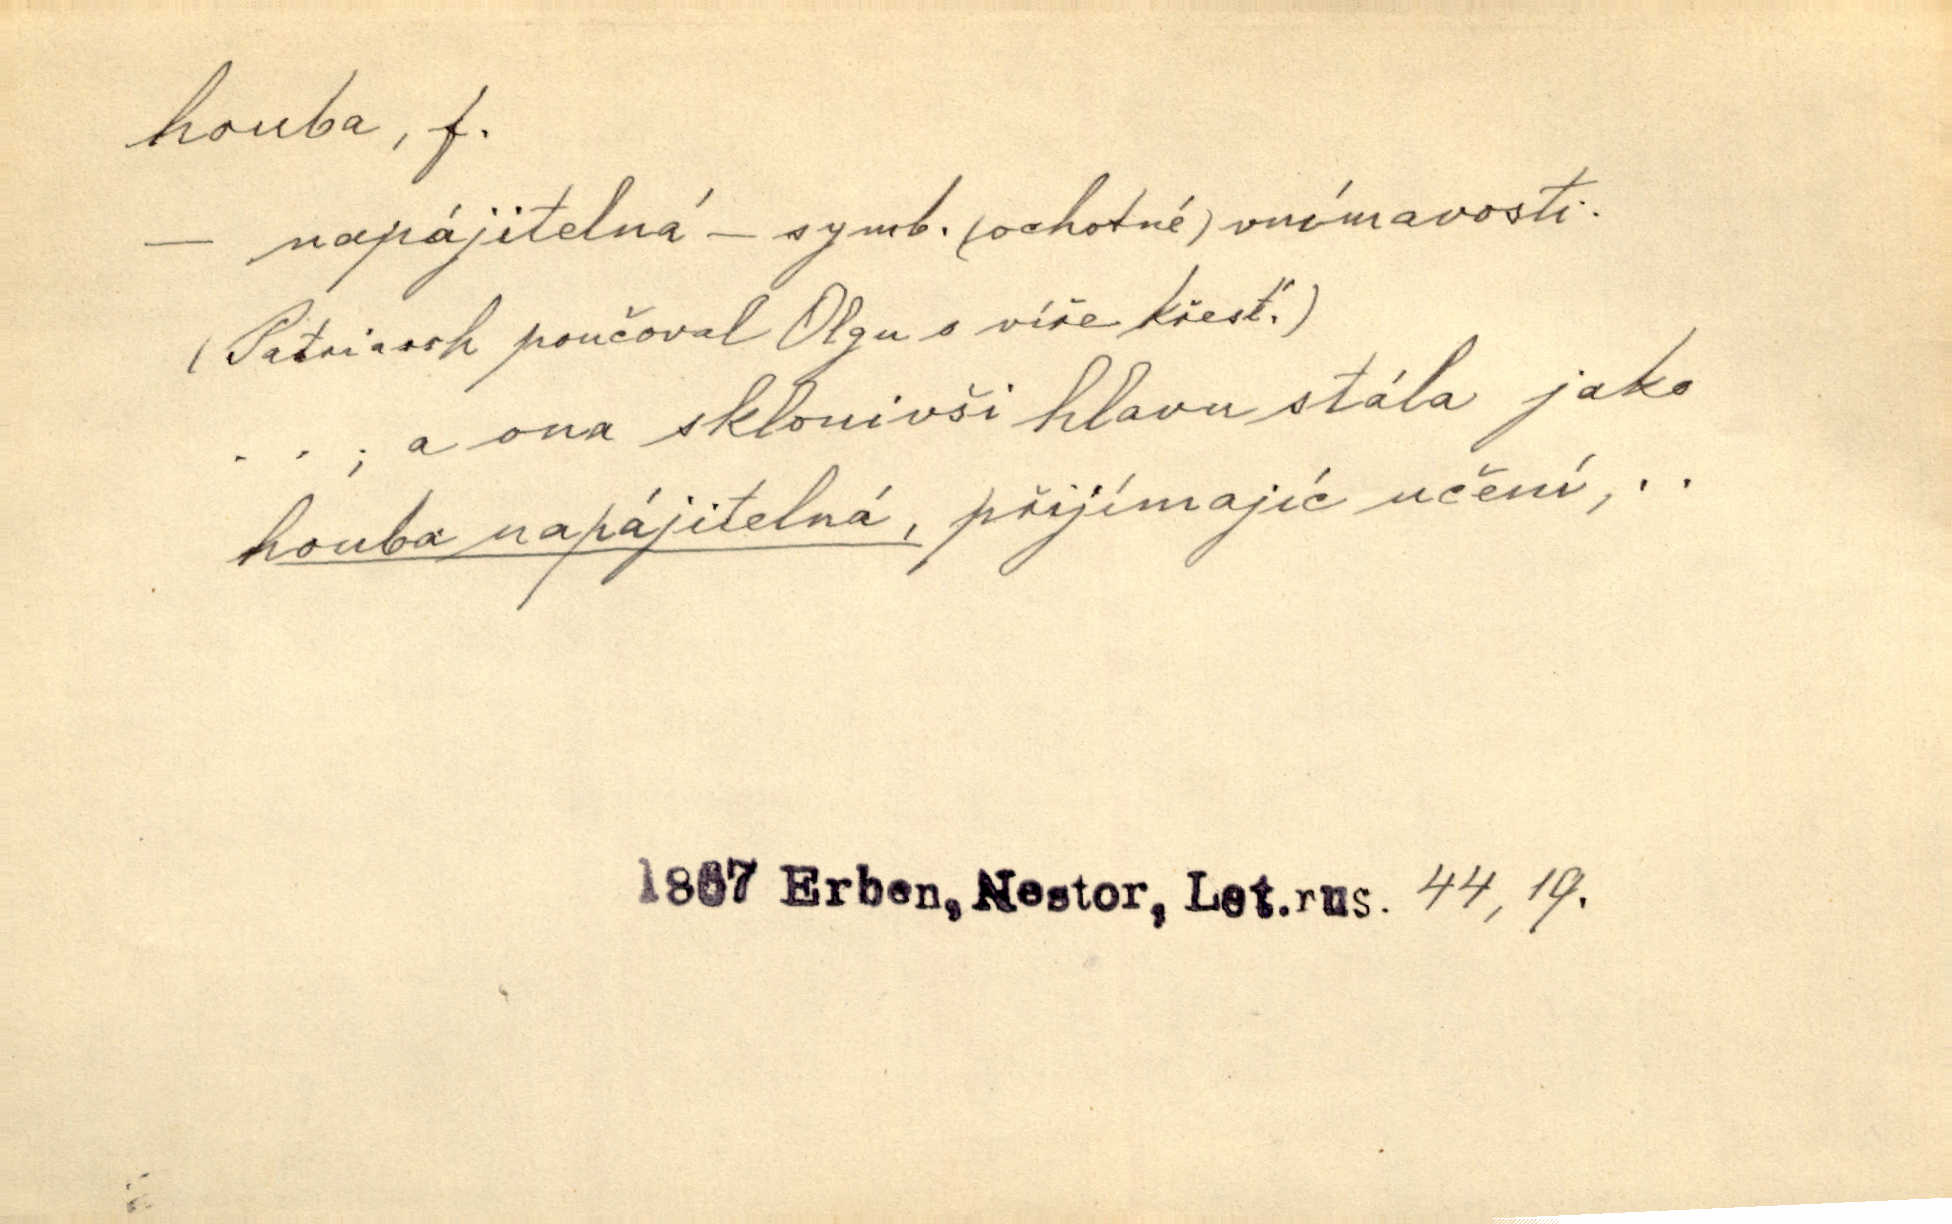 houba, f.
— napájitelná — symb. (ochotné) vnímavosti.
(Patriarch poučoval Olgu o víře křesť.)
. . ; a ona sklonivši hlavu stála jako
houba napájitelná, přijímajíc učení, . .
1867 Erben, Nestor, Let.rus. 44, 19.